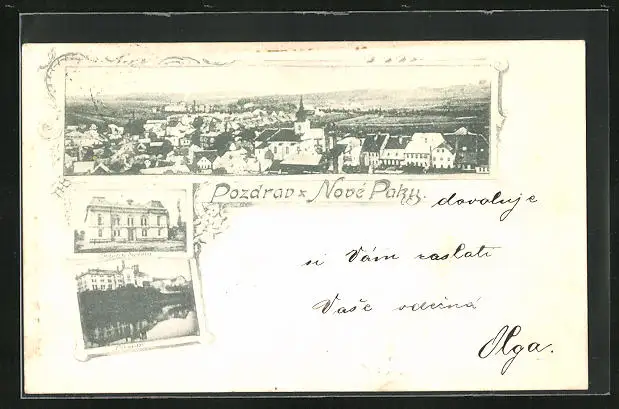 Pozdrav z Nové Paky. dovoluje
si Vám zaslati
Vaše vděčná
Olga.